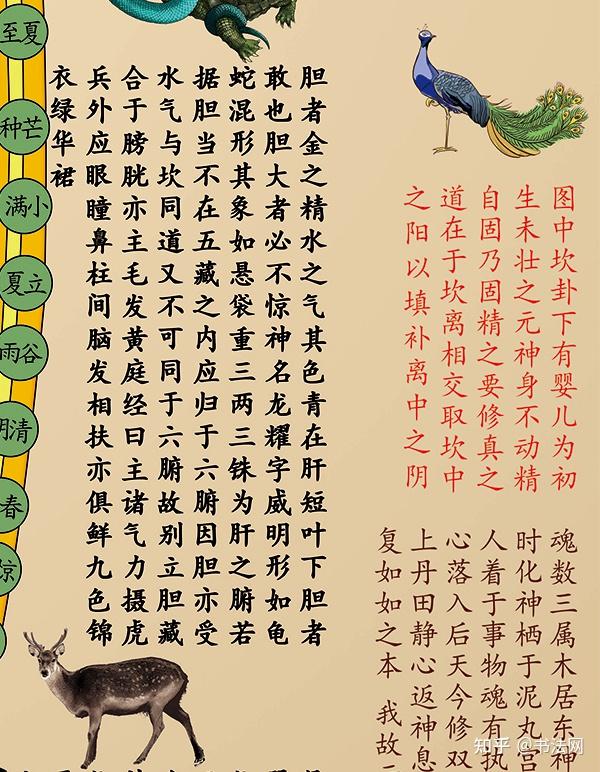 图中坎卦下有婴儿为初
生未壮之元神身不动精
自固乃固精之要修真之
道在于坎离相交取坎中
之阳以填补离中之阴
魂数三属木居东神
时化神栖于泥丸宫
人着于事物魂有执
心落入后天今修双
上丹田静心返神息
复如如之本 我故
胆者金之精水之气其色青在肝短叶下胆者
敢也胆大者必不惊神名龙耀字威明形如龟
蛇混形其象如悬袋重三两三铢为肝之腑若
据胆当不在五藏之内应归于六腑因胆亦受
水气与坎同道又不可同于六腑故别立胆藏
合于膀胱亦主毛发黄庭经曰主诸气力摄虎
兵外应眼瞳鼻柱间脑发相扶亦俱鲜九色锦
衣绿华裙
至夏
种芒
满小
夏立
雨谷
明清
春
知乎 @书法网